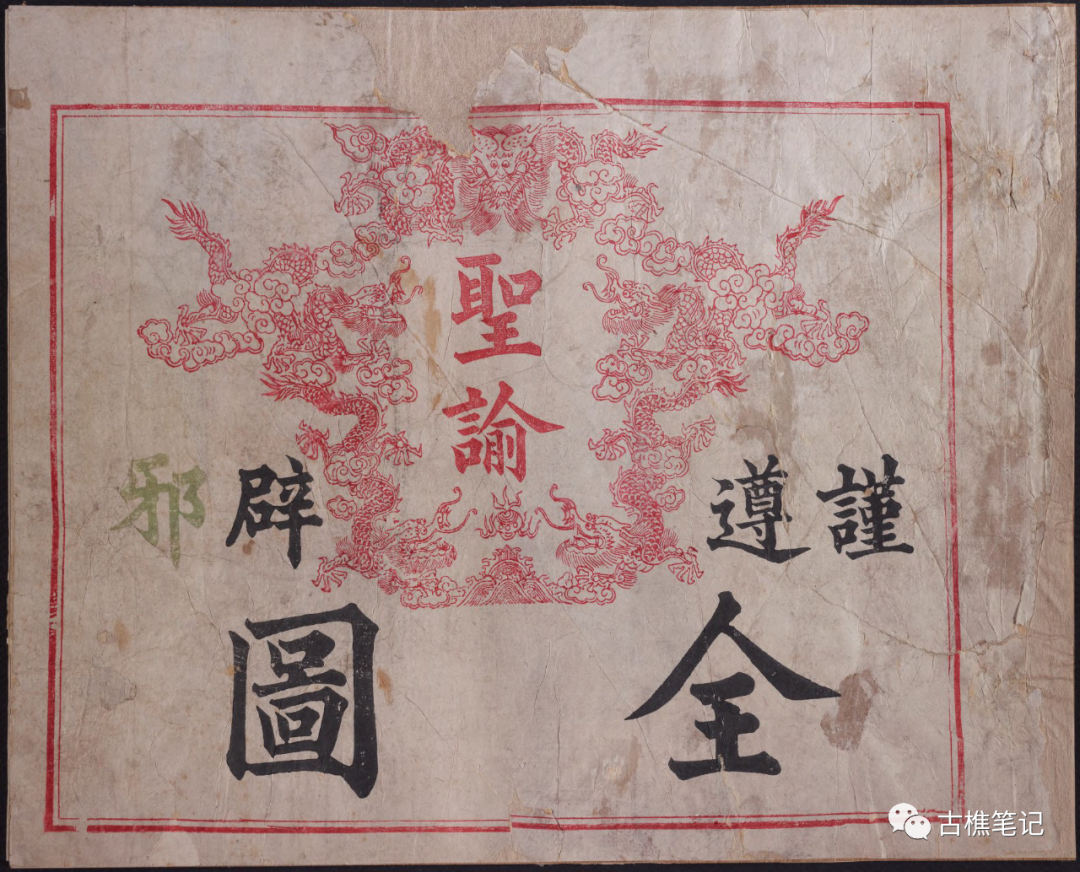 謹遵
聖諭
辟邪
全圖
古樵笔记